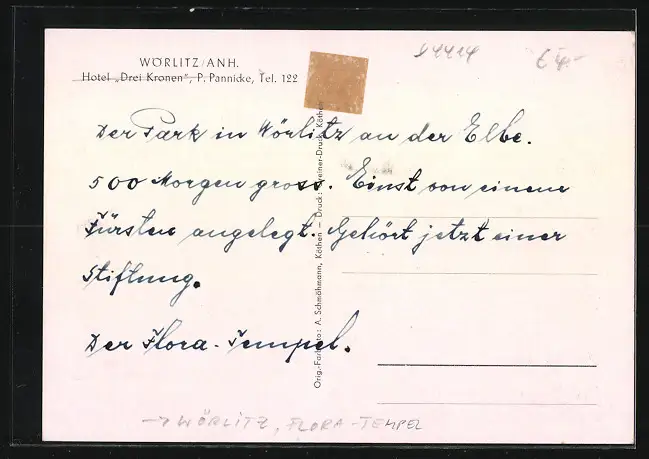 WÖRLITZ/ANH.
Hotel „Drei Kronen", P. Pannicke, Tel. 122
Der Park in Wörlitz an der Elbe.
500 Morgen gross. Einst von einem
Fürsten angelegt. Gehört jetzt einer
Stiftung.
Der Flora-Tempel.
Orig.-Farbfoto: A. Schmöhmann, Köthen — Druck: Druck, Köthen
→ WÖRLITZ, FLORA-TEMPEL